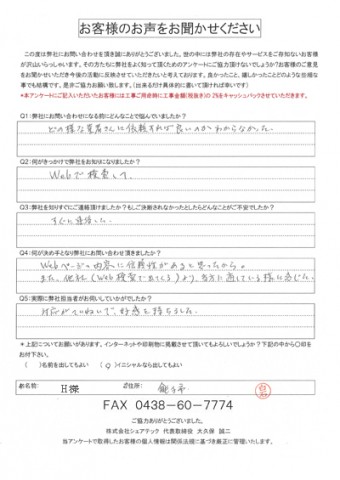 お客様のお声をお聞かせください
この度は弊社にお問い合わせを頂き誠にありがとうございました。世の中には弊社の存在やサービスをご存知ないお客様
が沢山いらっしゃいます。その方たちに弊社をよく知って頂くためのアンケートにご協力頂けないでしょうか?お客様のご意見
をお聞かせいただき今後の活動に反映させていただきたいと考えております。良かったこと、嬉しかったことどのような些細な
事でも結構です。是非ご協力お願い致します。(出来るだけ具体的に書いて頂ければ幸いです)
*本アンケートにご記入いただいたお客様には工事ご用命時に工事金額(税抜き)の2%をキャッシュバックさせていただきます。
Q1:弊社にお問い合わせになる前にどんなことで悩んでいましたか?
どの様な業者さんに依頼すれば良いのかわからなかった。
Q2:何がきっかけで弊社をお知りになりましたか?
Webで検索して。
Q3:弊社を知りすぐにご連絡頂けましたか?もしご決断されなかったとしたらどんなことがご不安でしたか?
すぐに連絡した。
Q4:何が決め手となり弊社にお問い合わせ頂きましたか?
Webページの内容に信頼性があると思ったから。
また、他社(Web検索で出てくる)より、当方に適している様に感じた。
Q5:実際に弊社担当者がお伺いしていかがでしたか?
対応がていねいで、好感を持ちました。
*上記についてお願いがあります。インターネットや印刷物に掲載させて頂いてもよろしいでしょうか?下記の中から〇印を
お付下さい。
( )名前を出してもよい (〇)イニシャルなら出してもよい
お名前: H様 ご住所: 銚子市
FAX 0438-60-7774
ご協力ありがとうございました。
株式会社シェアテック 代表取締役 大久保 誠二
当アンケートで取得したお客様の個人情報は関係法規に基づき厳正に管理いたします。